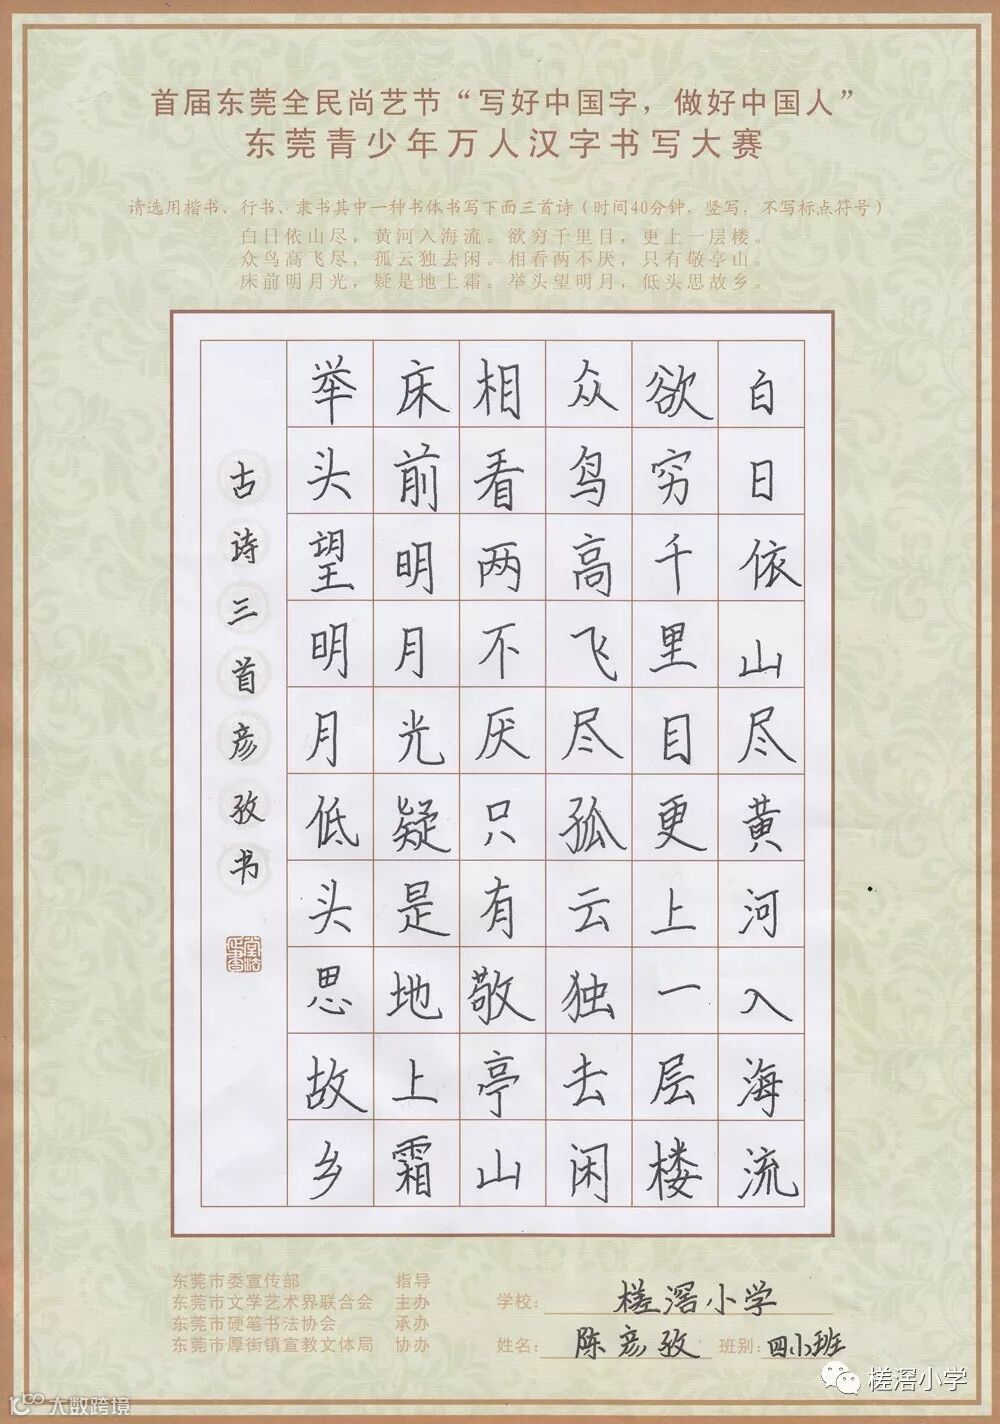 首届东莞全民尚艺节“写好中国字，做好中国人”
东莞青少年万人汉字书写大赛
请选用楷书、行书、隶书其中一种书体书写下面三首诗（时间40分钟，竖写，不写标点符号）
白日依山尽，黄河入海流。欲穷千里目，更上一层楼。
众鸟高飞尽，孤云独去闲。相看两不厌，只有敬亭山。
床前明月光，疑是地上霜。举头望明月，低头思故乡。
白日依山尽黄河入海流
欲穷千里目更上一层楼
众鸟高飞尽孤云独去闲
相看两不厌只有敬亭山
床前明月光疑是地上霜
举头望明月低头思故乡
古诗三首彦孜书
东莞市委宣传部 指导
东莞市文学艺术界联合会 主办
东莞市硬笔书法协会 承办
东莞市厚街镇宣教文体局 协办
学校：槎滘小学
姓名：陈彦孜 班别：四小班
槎滘小学
大数跨境